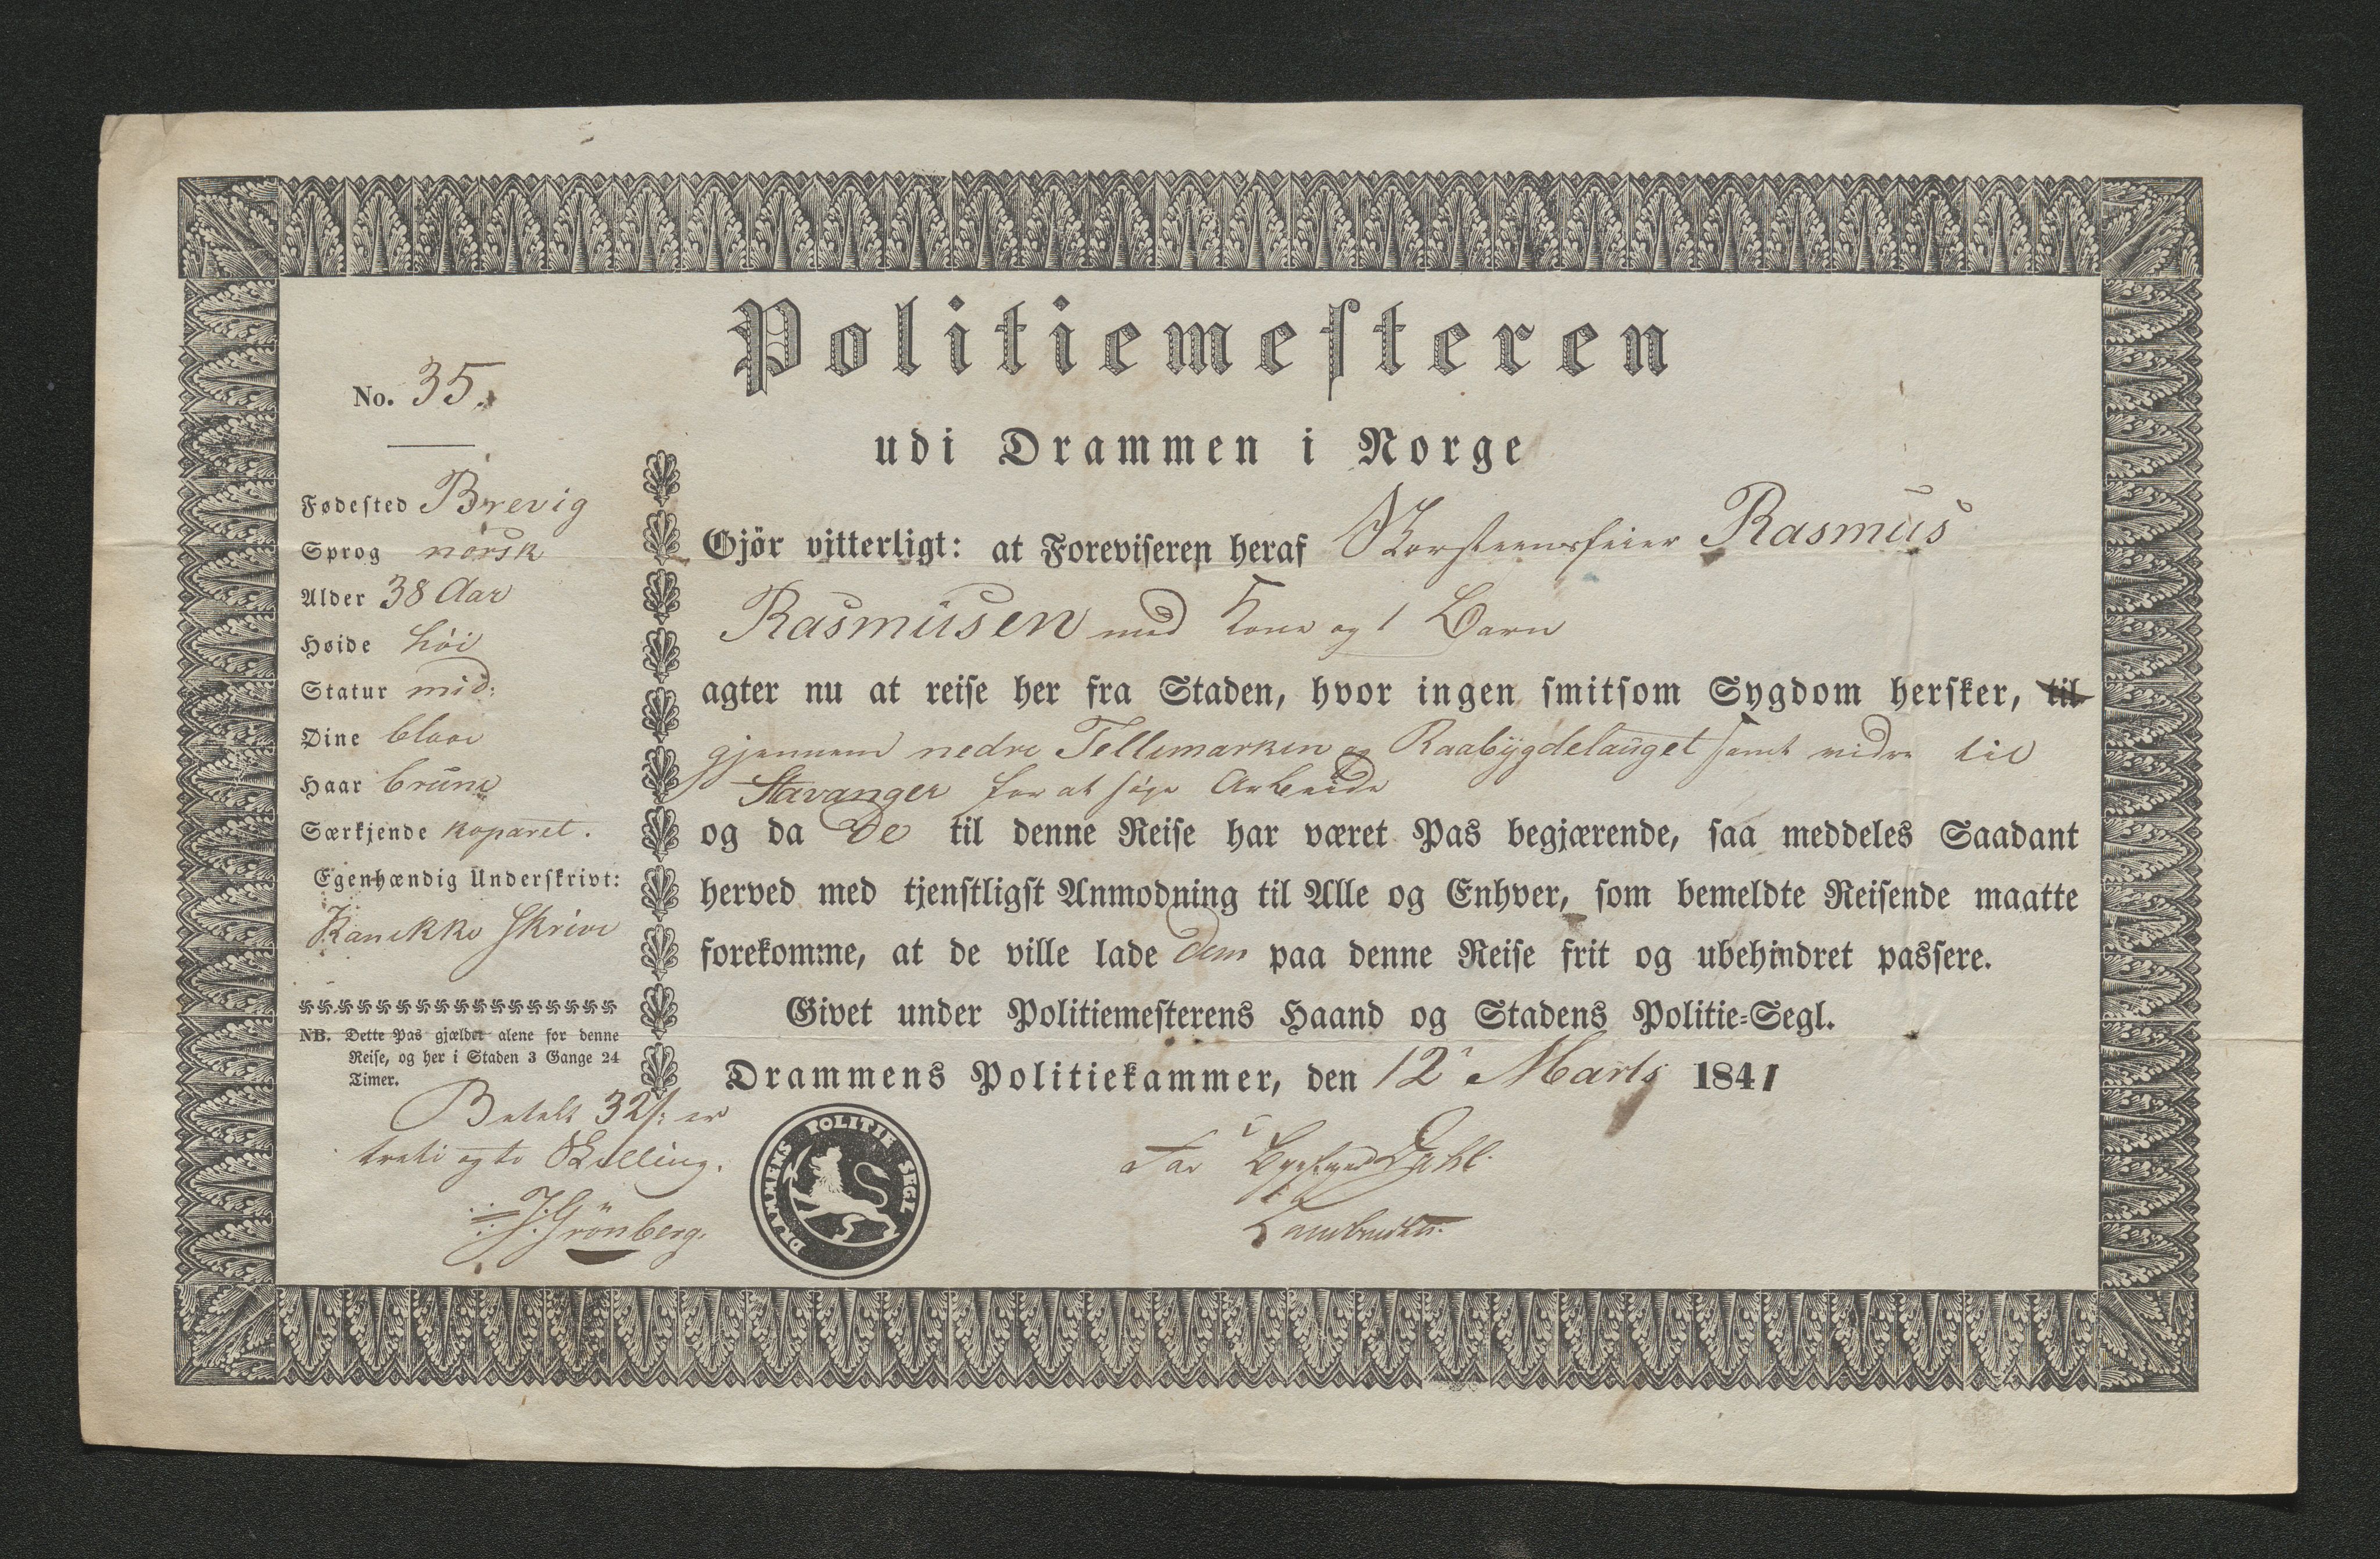 Politiemesteren
udi Drammen i Norge
No. 35.
Fødested Brevig
Sprog norsk
Alder 38 Aar
Høide höi
Statur mid:
Øine blaae
Haar brune
Særkjende koparet.
Egenhændig Underskrivt:
Kan ikke skrive
NB. Dette Pas gjælder alene for denne
Reise, og her i Staden 3 Gange 24
Timer.
Betalt 32 s: er
treti og to Skilling.
J. Grönberg.
Gjör vitterligt: at Foreviseren heraf Skorsteensfeier Rasmus
Rasmusen med Kone og 1 Barn
agter nu at reise her fra Staden, hvor ingen smitsom Sygdom hersker, til
gjennem nedre Tellemarken og Raabygdelauget samt vidre til
Stavanger for at söge Arbeide
og da De til denne Reise har været Pas begjærende, saa meddeles Saadant
herved med tjenstligst Anmodning til Alle og Enhver, som bemeldte Reisende maatte
forekomme, at de ville lade dem paa denne Reise frit og ubehindret passere.
Givet under Politiemesterens Haand og Stadens Politie-Segl.
Drammens Politiekammer, den 12 Marts 1841
DRAMMENS POLITIE SEGL
Dahl.